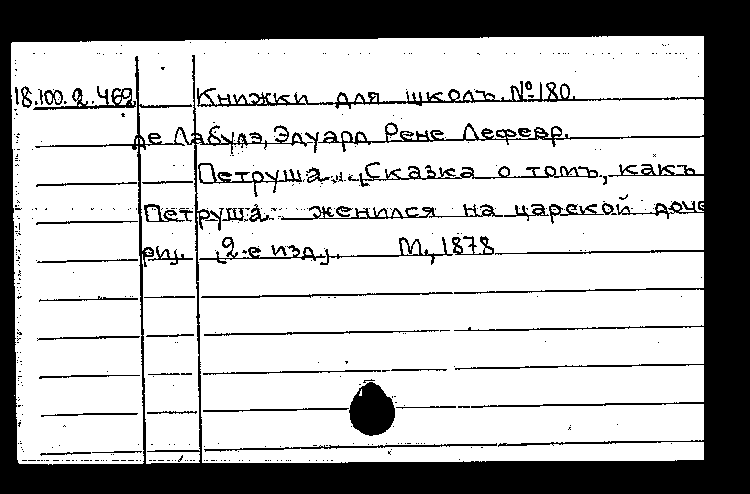 18.100.2.462 Книжки для школъ. №180.
де Лабулэ, Эдуард Рене Лефевр.
Петруша... [Сказка о томъ, какъ
Петруша женился на царской доче
ри]. [2-е изд.]. М., 1878